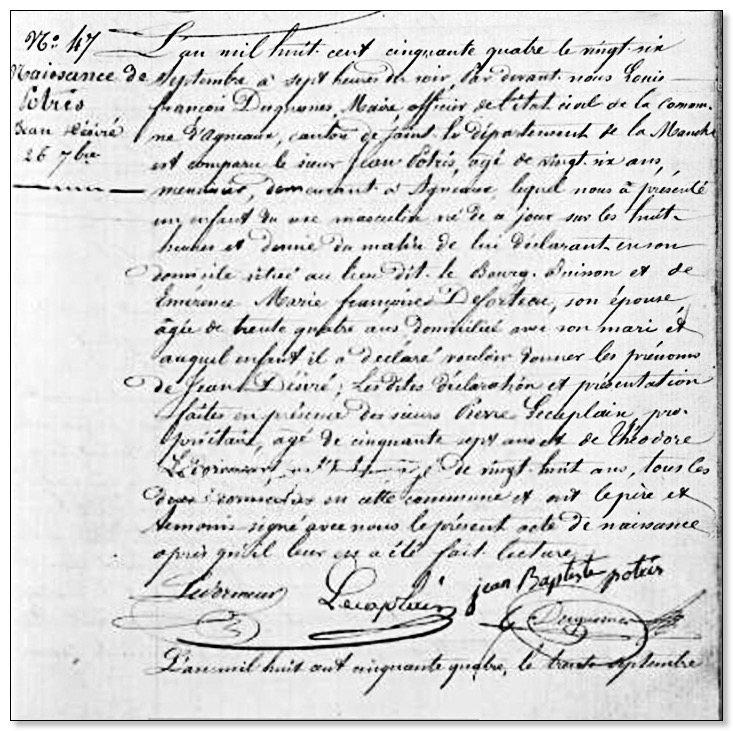 N.o 47
Naissance de
Potrés
Jean Désiré
26 7bre
L'an mil huit cent cinquante quatre le vingt-six
Septembre à sept heures du soir, Par devant nous Louis
françois Maire officier de l'état civil de la commu-
ne d'Agneaux, canton de Saint-Lo département de la Manche
est comparu le sieur Jean Potrés, agé de vingt-six ans,
demeurant à Agneaux lequel nous à présenté
un enfant du sexe masculin né de ce jour sur les huit
heures et demie du matin de lui déclarant en son
domicile situé au lieu dit le Bourg Buisson et de
Emérence Marie françoise son épouse
âgée de trente quatre ans domiciliée avec son mari et
auquel enfant il à déclaré vouloir donner les prénoms
de Jean Désiré; Les dites déclaration et présentation
faites en présence des sieurs Pierre Lecaplain, pro-
priétaire, agé de cinquante sept ans et de Théodore
de vingt-huit ans, tous les
deux domiciliés en cette commune et ont le père et
témoins signé avec nous le présent acte de naissance
après qu'il leur en a été fait lecture
Lecaplain jean Baptiste potrés
L'an mil huit cent cinquante quatre, le trente septembre